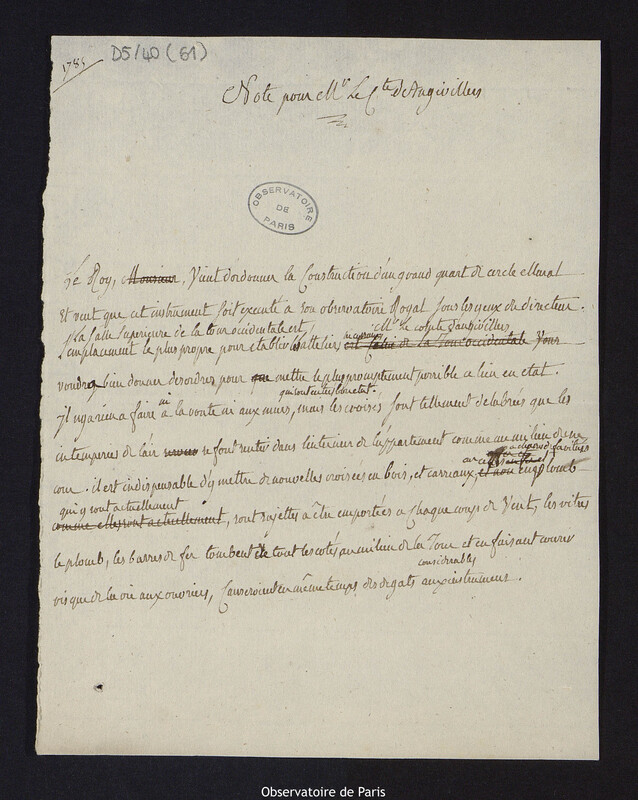 1785
D5/40 (61)
Note pour Mr Le Cte d'Angiviller
OBSERVATOIRE
DE
PARIS
Le Roy, Monsieur, vient d'ordonner la Construction d'un grand quart de cercle Mural
et veut que cet instrument soit executé a son observatoire Royal sous les yeux du directeur.
La salle superieure de la tour occidentale est Mr le compte d'angiviller
l'emplacement le plus propre pour etablir les atteliers de la Tour occidentale Vous
voudra bien donner des ordres pour que mettre le plus promptement possible ce lieu en etat.
qui sont en tres bon etat
il n'y a rien a faire ni a la voute ni aux murs, mais les croisés sont tellement delabrés que les
intemperies de l'air se font sentir dans l'interieur de l'appartement comme au milieu d'une
cour. il est indispensable d'y mettre de nouvelles croisées en bois, et carreaux plomb
qui y sont actuellement
comme elles sont actuellement, sont sujettes a être emportées a chaque coup de vent, les vitres
le plomb, les barres de fer tombent de tout les cotés au milieu de la Tour et en faisant courir
considerables
risque de la vie aux ouvriers, causeroient en même temps des degats aux instrumens.
Observatoire de Paris